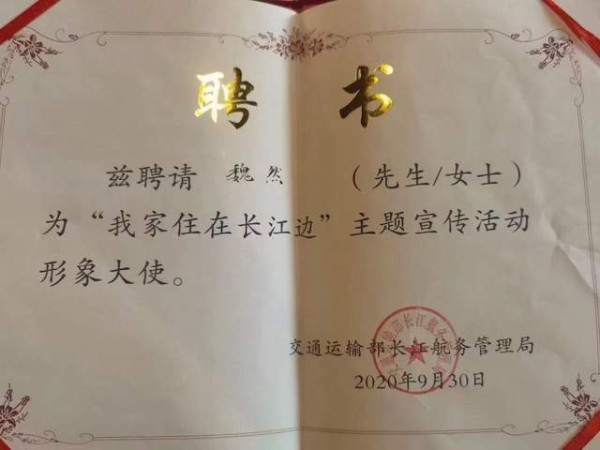 聘书
兹聘请 魏然 （先生/女士）
为“我家住在长江边”主题宣传活动
形象大使。
交通运输部长江航务管理局
2020年9月30日